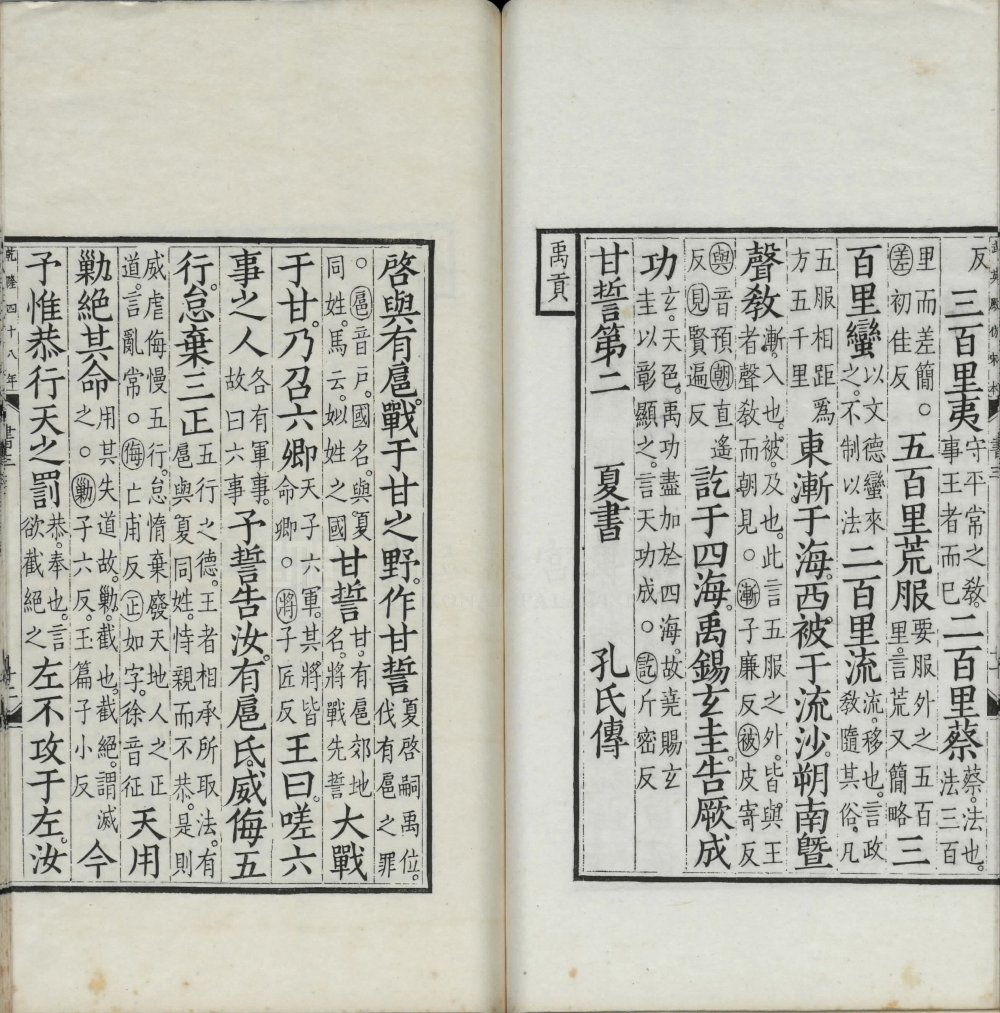 反三百里夷守平常之教。事王者而已二百里蔡蔡。法也。法三百
里而差簡。○差初佳反五百里荒服要服外之五百里。言荒又簡略三
百里蠻以文德蠻來之。不制以法二百里流流。移也。言政教隨其俗。凡
五服相距爲方五千里東漸于海。西被于流沙。朔南曁
聲教漸。入也。被。及也。此言五服之外。皆與王者聲教而朝見。○漸子廉反被皮寄反
與音預朝直遙反見賢遍反訖于四海。禹錫玄圭。告厥成
功玄。天色。禹功盡加於四海。故堯賜玄圭以彰顯之。言天功成。○訖斤密反
甘誓第二 夏書 孔氏傳
禹貢
啓與有扈。戰于甘之野。作甘誓夏啓嗣禹位。伐有扈之罪
○扈音戶。國名。與夏同姓。馬云。姒姓之國甘誓甘。有扈郊地名。將戰先誓大戰
于甘。乃召六卿天子六軍。其將皆命卿。○將子匠反王曰。嗟六
事之人各有軍事。故曰六事予誓告汝。有扈氏。威侮五
行。怠棄三正五行之德。王者相承所取法。有扈與夏同姓。恃親而不恭。是則
威虐侮慢五行。怠惰棄廢天地人之正道。言亂常。○侮亡甫反正如字。徐音征天用
勦絕其命用其失道故。勦。截也。截絕。謂滅之。○勦子六反。玉篇子小反今
予惟恭行天之罰恭。奉也。言欲截絕之左不攻于左。汝
乾隆四十八年 書三 十二